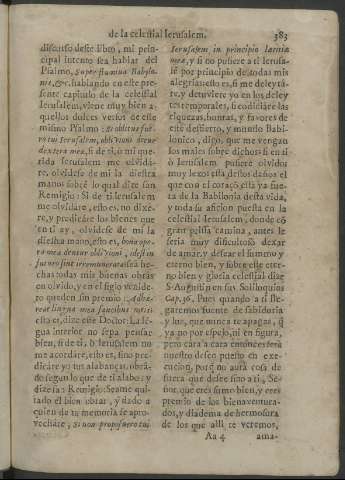 de la celestial Ierusalem. 383
discurso deste libro, mi prin-
cipal intento sea hablar del
Psalmo, Super flumina Babylo-
nis, &c. hablando en este pre-
sente capitulo de la celestial
Ierusalem, viene muy bien a-
quellos dulces versos de este
mismo Psalmo: Si oblitus fue-
ro tui Ierusalem, obliuioni detur
dextera mea, si de ti, ò mi que-
rida Ierusalem me olvidà-
re, olvidese de mi la diestra
mano: sobre lo qual dize san
Remigio: Si de ti Ierusalem
me olvidàre, esto es, no dixe-
re, y predicàre los bienes que
en ti ay, olvidese de mi la
diestra mano, esto es, bona ope-
ra mea dentur obliuioni, idest in
hechas todas mis buenas obras
en olvido, y en el siglo venide-
ro queden sin premio: Adhæ-
reat lingua mea faucibus meis:
esto es, dize este Doctor: La lẽ-
gua interior no sepa pensar
bien, si de ti, ò Ierusalem no
me acordàre, esto es, sino pre-
dicàre yo tus alabanças, obrã-
do segun lo que de ti alabo: y
dize san Remigio: Seame qui-
tado el bien obrar, y dado a
quien de tu memoria se apro-
vechàre, Si non proposuero tui
Ierusalem in principio lætitiæ
meæ, y si no pusiere a ti Ierusa-
lẽ por principio de todas mis
alegrias: esto es, si me deleytà-
re, y detuviere yo en los deley
tes temporales, si codiciàre las
riquezas, honras, y favores de
este destierro, y mundo Babi-
lonico, digo, que me vengan
los males sobre dichos: si en ti
ò Ierusalem pusiere olvido:
muy lexos està destos daños el
que con el coraçõ està ya fue-
ra de la Babilonia desta vida,
y toda su aficion puesta en la
celestial Ierusalem, donde cõ
gran prissa camina, antes le
seria muy dificultoso dexar
de amar, y desear el sumo, y
eterno bien, y sobre este eter-
no bien y gloria celestial dize
S. Augustin en sus Soliloquios
Cap. 36. Pues quando a ti lle-
garemos fuente de sabiduria
y luz, que nunca te apagas, q̃
ya no por espejo, ni en figura,
pero cara a cara entonces serà
nuestro deseo puesto en exe-
cucion, porq̃ no aurà cosa de
fuera que desee sino a ti, Se-
ñor, que eres sumo bien, y eres
premio de los bienaventura-
dos, y diadema de hermosura
de los que alli te veremos,
Aa 4 ama-